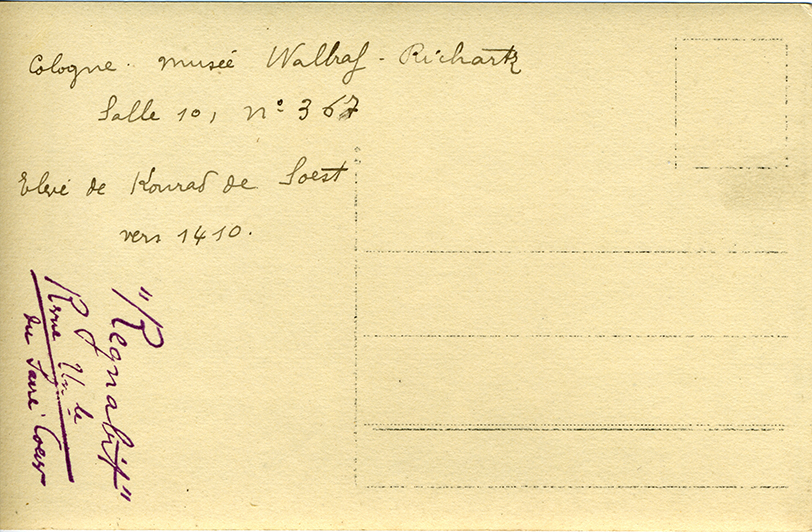 Cologne. Musée Wallraf-Richartz
Salle 10, N° 367
Elève de Konrad de Soest
vers 1410.
"Regnabit"
R
Revue Un.le
du Sacré Coeur